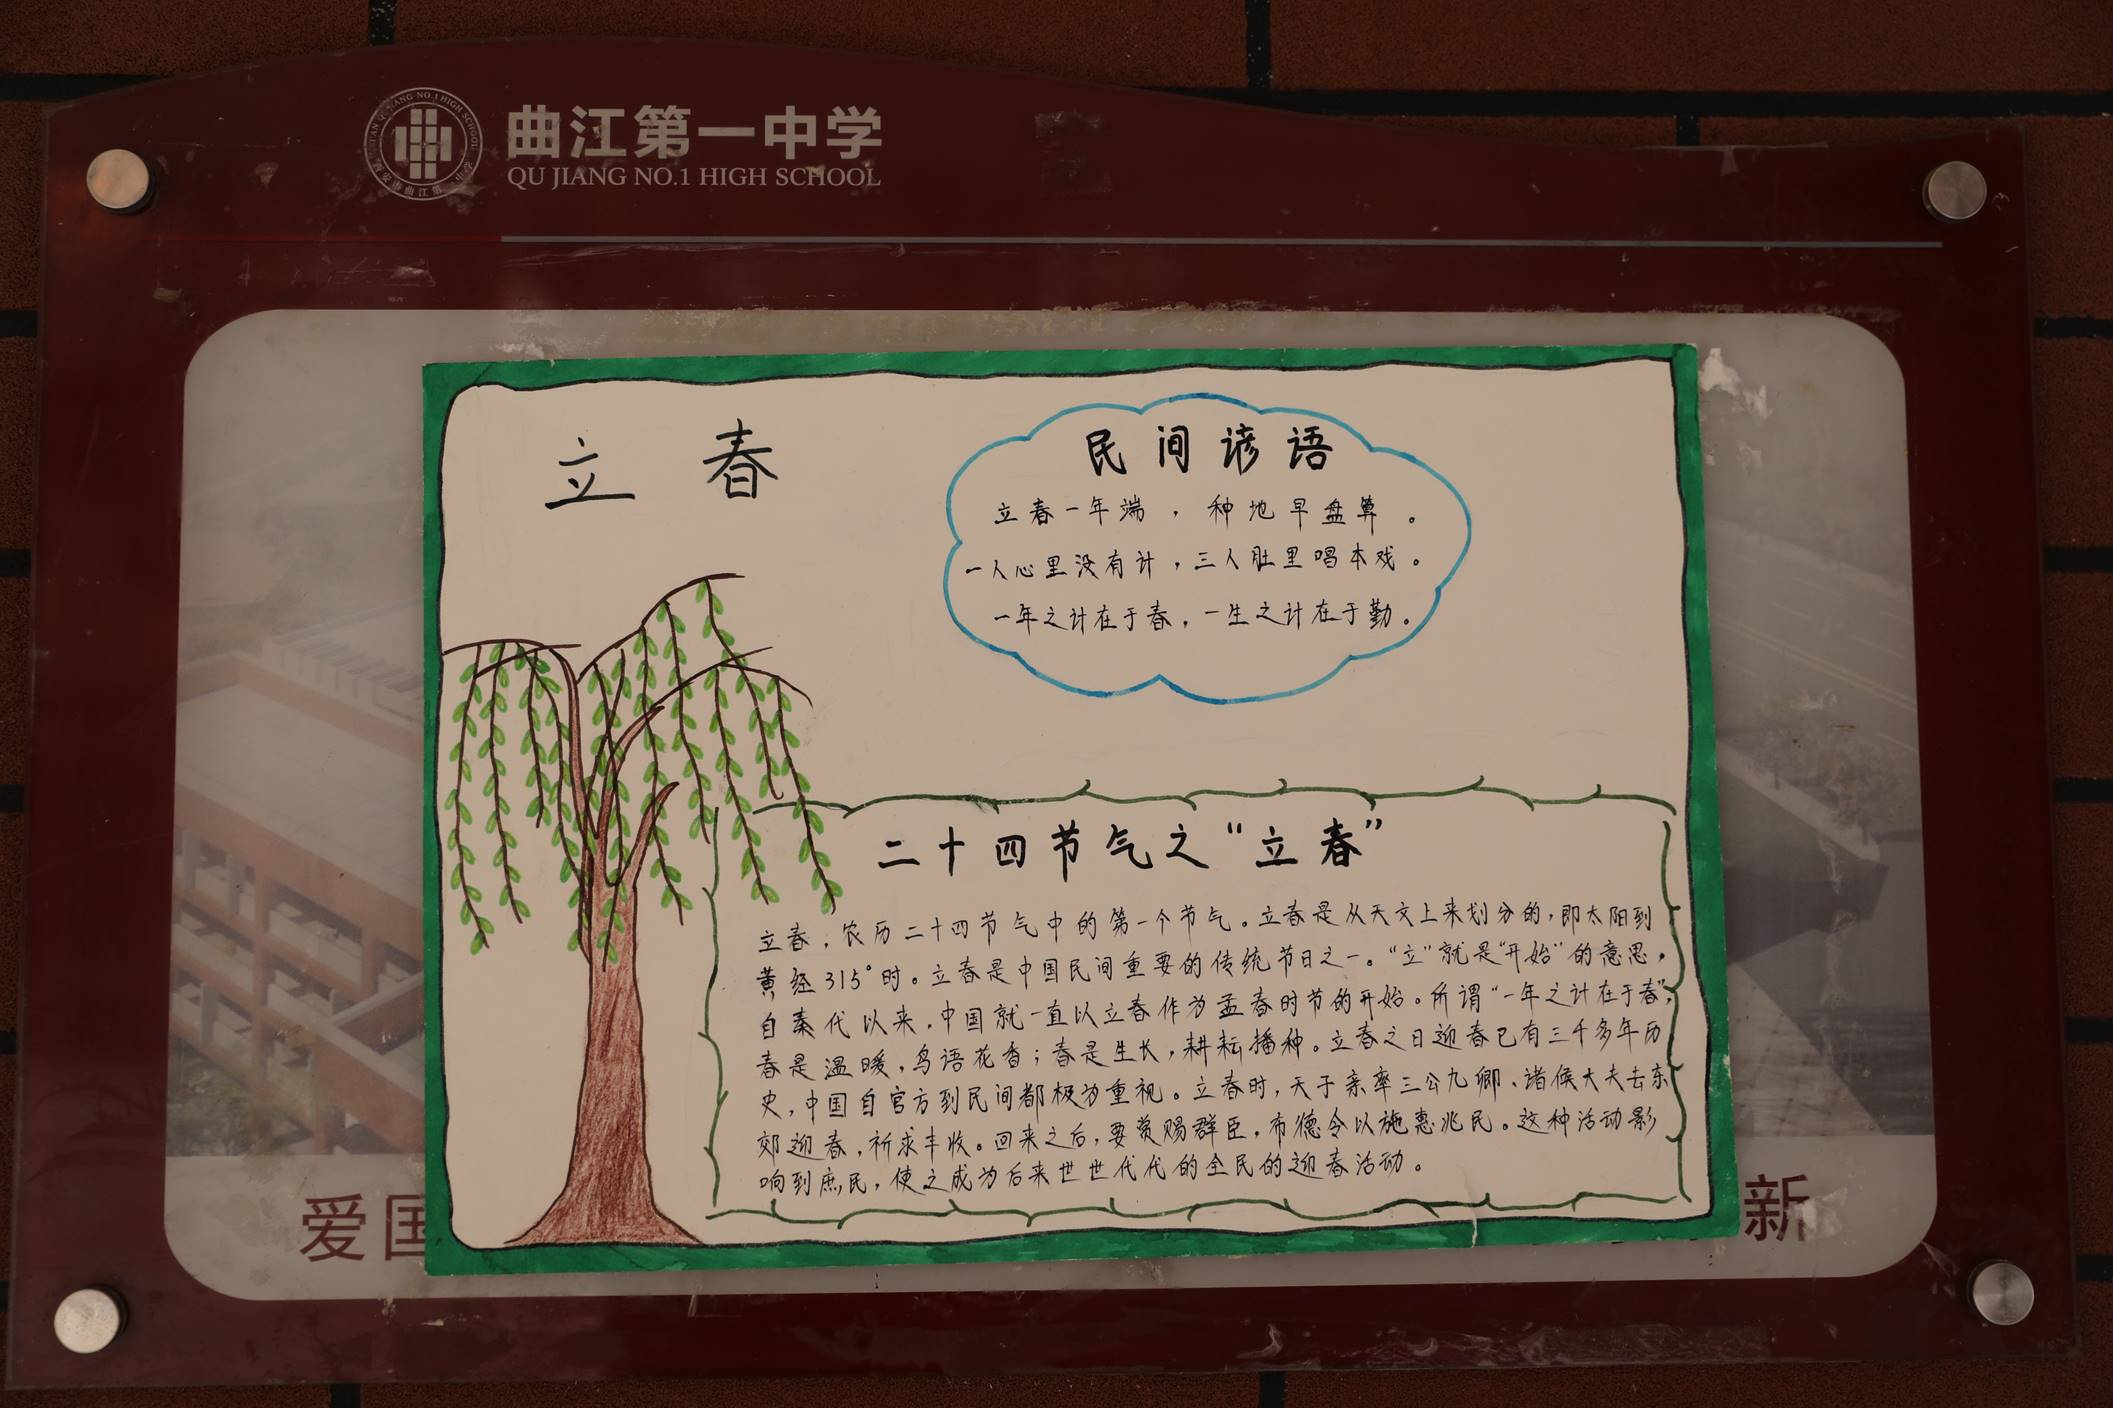 曲江第一中学
QU JIANG NO.1 HIGH SCHOOL
立春
民间谚语
立春一年端，种地早盘算。
一人心里没有计，三人肚里唱本戏。
一年之计在于春，一生之计在于勤。
二十四节气之“立春”
立春，农历二十四节气中的第一个节气。立春是从天文上来划分的，即太阳到
黄经315°时。立春是中国民间重要的传统节日之一。“立”就是“开始”的意思，
自秦代以来，中国就一直以立春作为孟春时节的开始。所谓“一年之计在于春”，
春是温暖，鸟语花香；春是生长，耕耘播种。立春之日迎春已有三千多年历
史，中国自官方到民间都极为重视。立春时，天子亲率三公九卿、诸侯大夫去东
郊迎春，祈求丰收。回来之后，要赏赐群臣，布德令以施惠兆民。这种活动影
响到庶民，使之成为后来世世代代的全民的迎春活动。
爱国
新